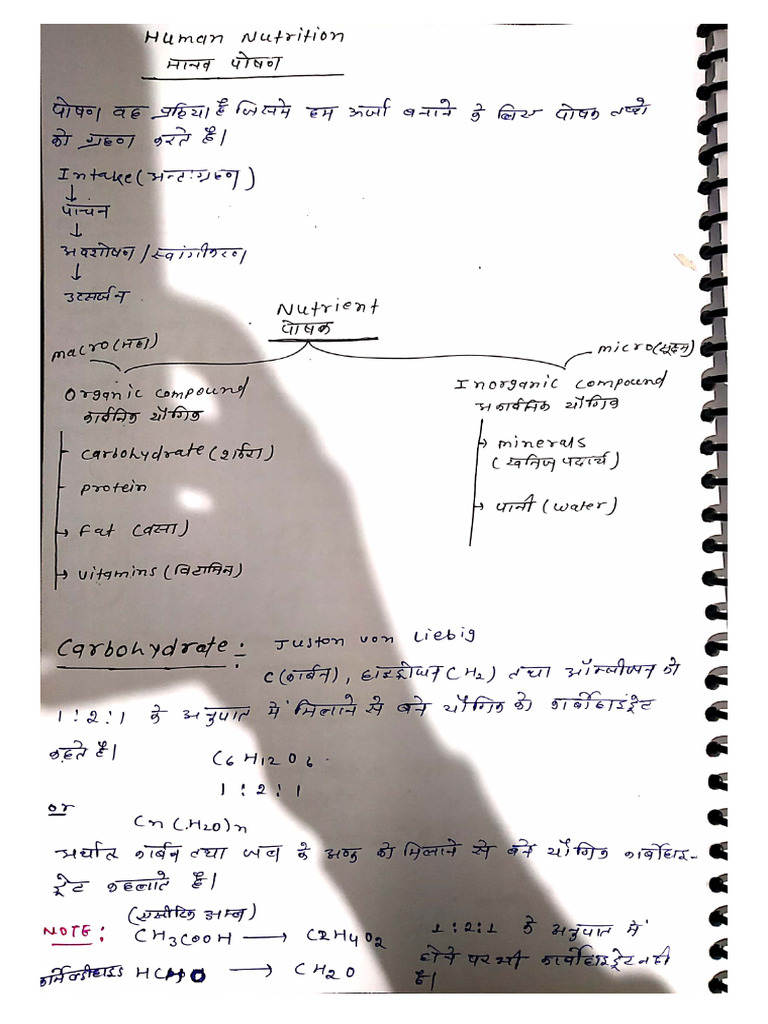 Human Nutrition
मानव पोषण
पोषण वह प्रक्रिया है जिसमे हम ऊर्जा बनाने के लिए पोषक तत्वो
को ग्रहण करते है।
Intake (अन्तःग्रहण)
↓
पाचन
↓
अवशोषण / स्वांगीकरण
↓
उत्सर्जन
Nutrient
पोषक
macro (महा)
micro (सूक्ष्म)
Organic compound
कार्बनिक यौगिक
carbohydrate (शर्करा)
protein
Fat (वसा)
vitamins (विटामिन)
Inorganic compound
अकार्बनिक यौगिक
minerals
(खनिज पदार्थ)
पानी (water)
Carbohydrate: Juston von Liebig
C (कार्बन), हाइड्रोजन (H2) तथा ऑक्सीजन को
1:2:1 के अनुपात में मिलाने से बने यौगिक को कार्बोहाइड्रेट
कहते है।
C6H12O6
1:2:1
or
Cn(H2O)n
अर्थात कार्बन तथा जल के अणु को मिलाने से बने यौगिक कार्बोहाइ-
ड्रेट कहलाते है।
(एसीटिक अम्ल)
NOTE: CH3COOH → C2H4O2
1:2:1 के अनुपात में
होने पर भी कार्बोहाइड्रेट नही
है।
HCHO → CH2O